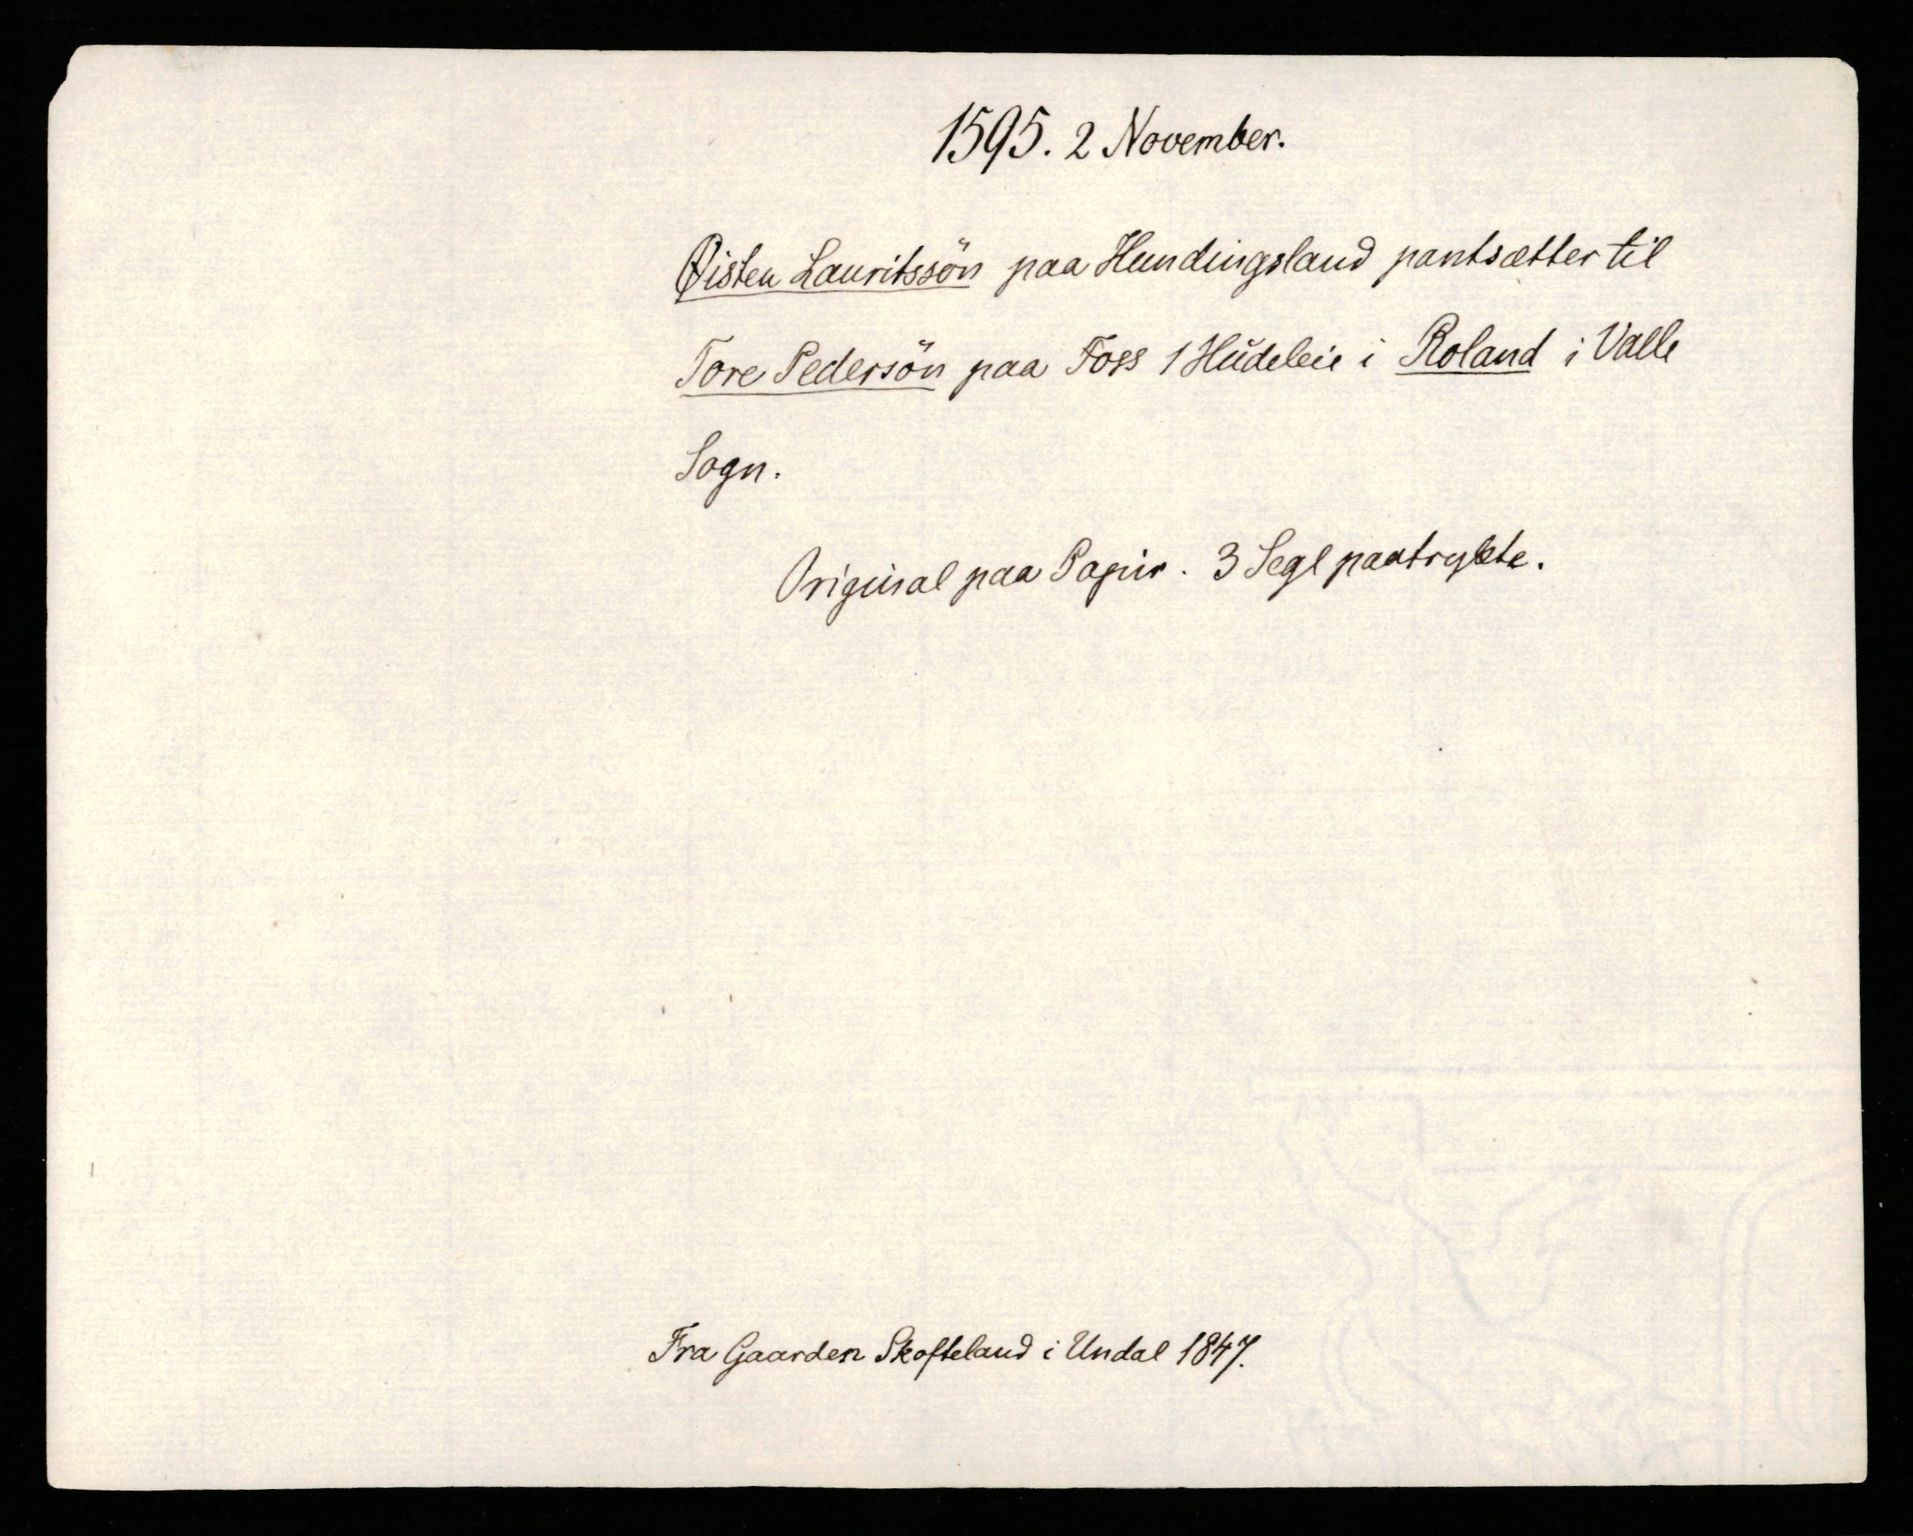 1595. 2 November.
Øisten Lauritssön paa Hundingsland pantsætter til
Tore Pedersön paa Foss 1 Hudeleie i Roland i Valle
Sogn.
Original paa Papir. 3 Segl paatrykte.
Fra Gaarden Skofteland i Undal 1847.